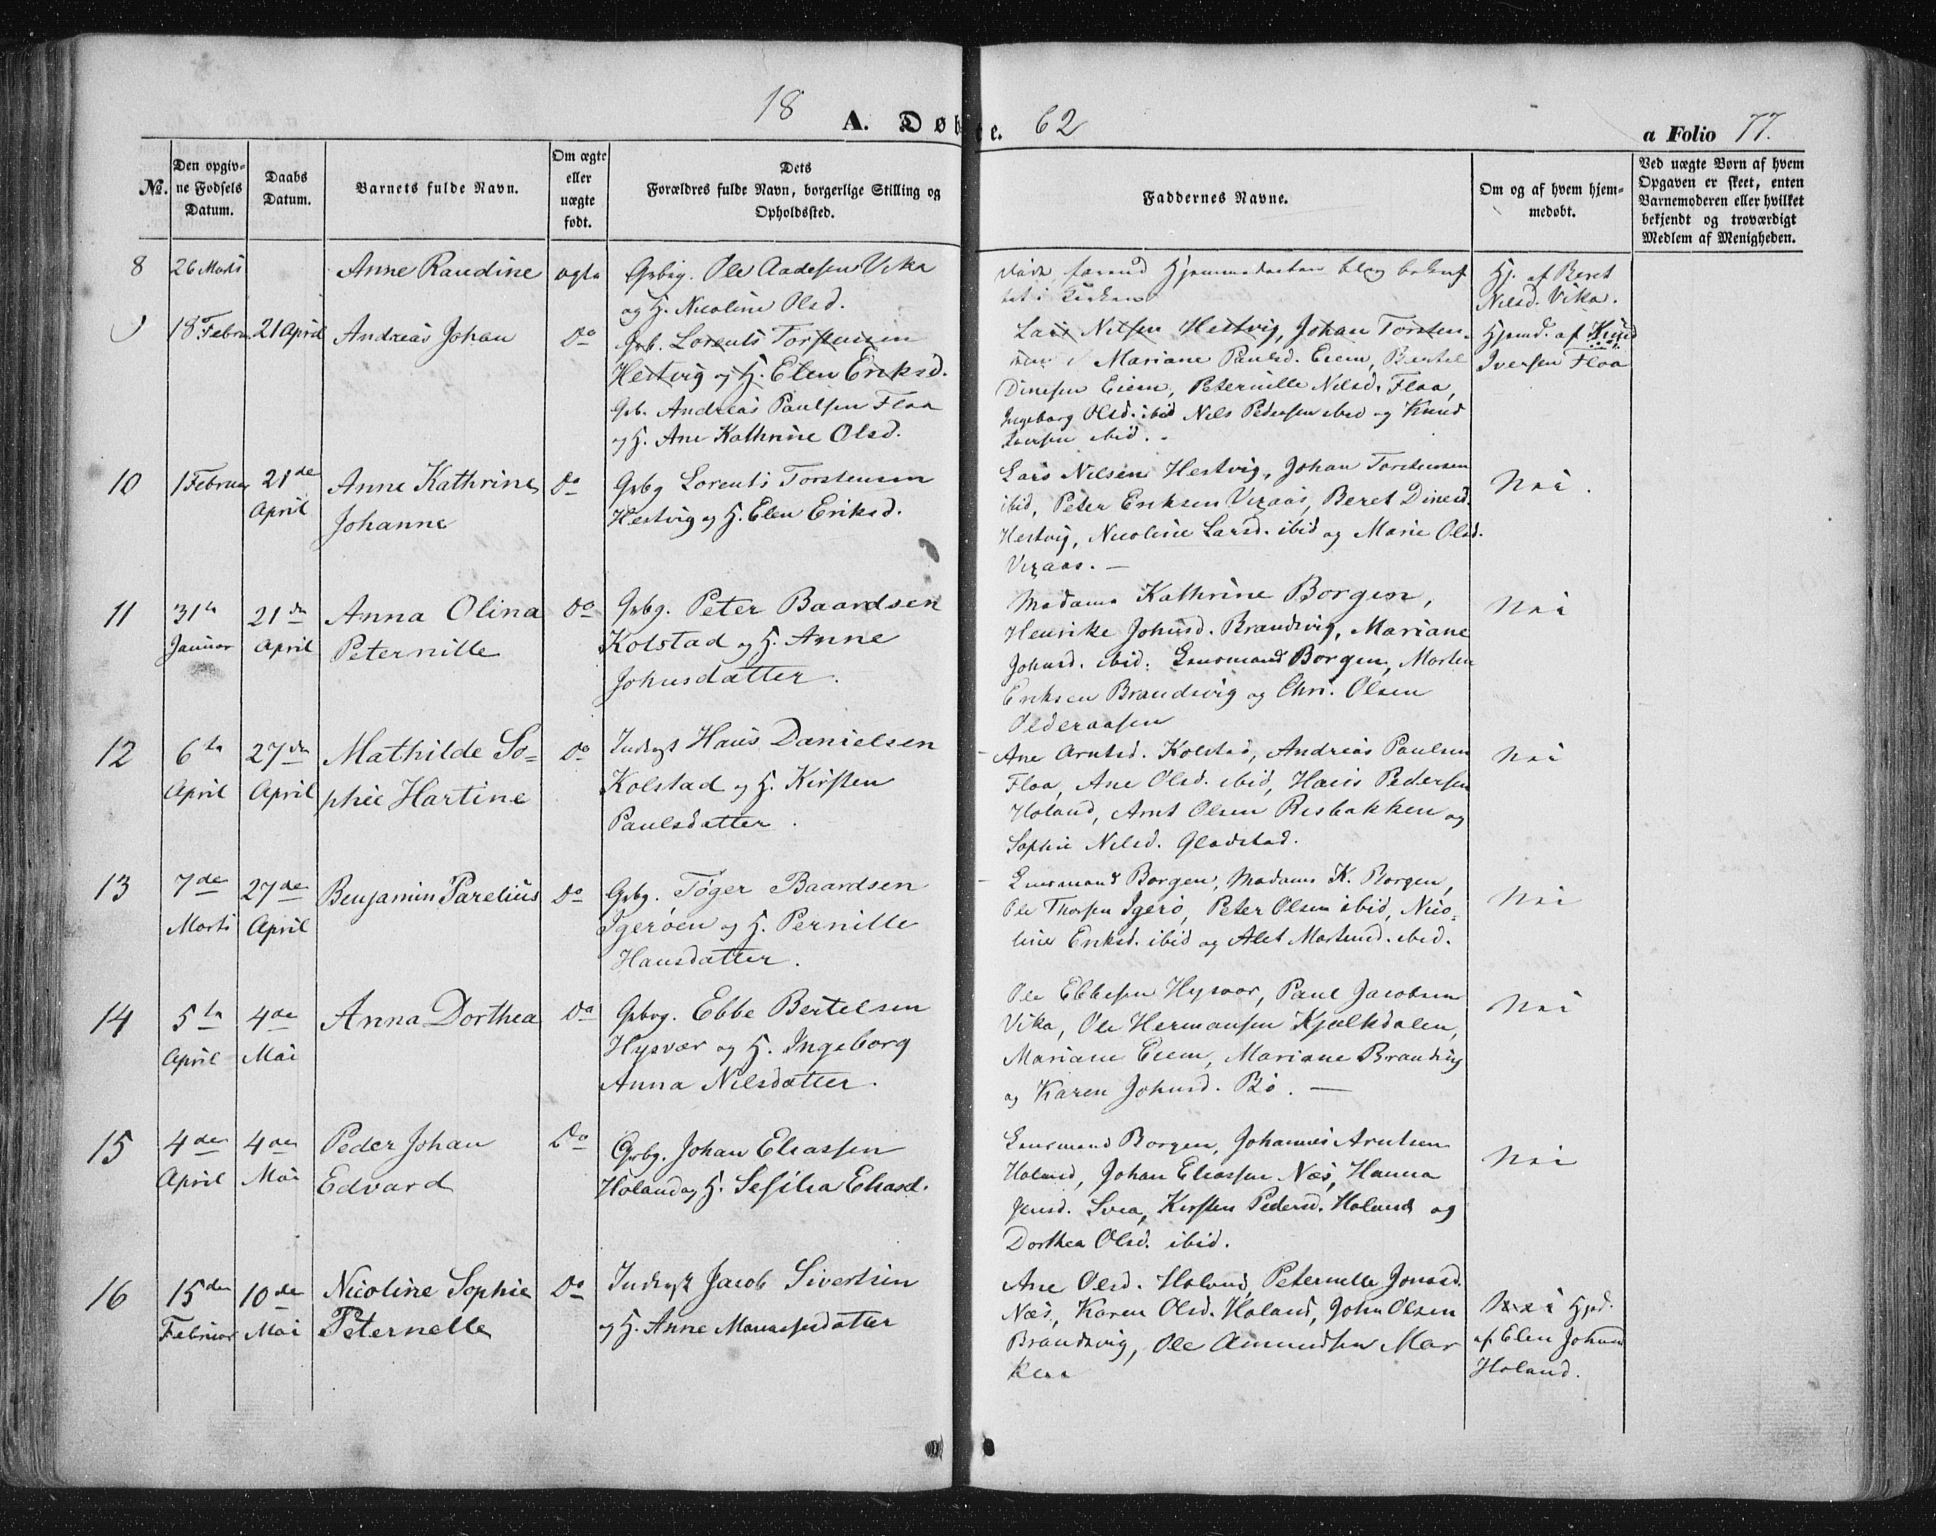 18 A. Døbte. 62
a Folio 77.
No.
Den opgiv-
ne Fødsels
Datum.
Daabs
Datum.
Barnets fulde Navn.
Om ægte
eller
uægte
født.
Dets
Forældres fulde Navn, borgerlige Stilling og
Opholdssted.
Faddernes Navne.
Om og af hvem hjem-
medøbt.
Ved uægte Børn af hvem
Opgaven er skeet, enten
Barnemoderen eller hvilket
bekjendt og troværdigt
Medlem af Menigheden.
8
26 Marts
Anne Randine
ægte
Grbg. Ole Aadesen Vika
og H. Nicoline Olsd.
døde forend Hjemmedaaben blev
Kirken
Hj. af Beret
Nilsd. Vika.
9
18 Februar
21 April
Andreas Johan
Do
Grb. Lorents Torstensen
Hestvig og H. Elen Eriksd.
Grb. Andreas Paulsen Floa
og H. Ane Kathrine Olsd.
Lars Nilsen Hestvig, Johan Torsten-
sen Mariane Paulsd. Eiem, Bertel
Dinesen Eiem, Peternille Nilsd. Floa,
Ingeborg Olsd. ibid Nils Pedersen ibid og Knud
Iversen ibid.
Hjemd. af Knud
Iversen Floa
10
1 Februar
21de
April
Anne Kathrine
Johanne
Do
Grbg Lorents Torstensen
Hestvig og H. Elen Eriksd.
Lars Nilsen Hestvig, Johan Torstensen
ibid, Peter Eriksen Vegaas, Beret Dinesd.
Hestvig, Nicoline Larsd. ibid og Marie Olsd.
Vegaas. —
Nei.
11
31te
Januar
21de
April
Anna Olina
Peternille
Do
Grbg. Peter Baardsen
Kolstad og H. Anne
Johnsdatter.
Madame Kathrine Borgen,
Henrike Johnsd. Brandsvig, Mariane
Johnsd. ibid. Lensmand Borgen, Morten
Eriksen Brandsvig og Chri. Olsen
Olderaasen
Nei
12
6te
April
27de
April
Mathilde So=
phie Hartine
Do
Inderst Hans Danielsen
Kolstad og H. Kirsten
Paulsdatter.
Ane Arntsd. Kolstad, Andreas Paulsen
Floa, Ane Olsd. ibid, Hans Pedersen
Holand, Arnt Olsen Risbakken og
Sophie Nilsd. Gladstad.
Nei
13
7de
Marts
27de
April
Benjamin Parelius
Do
Grbg. Tøger Baardsen
Igerøen og H. Pernille
Hansdatter.
Lensmand Borgen, Madame K. Borgen,
Ole Thorsen Igerø, Peter Olsen ibid, Nico-
line Eriksd. ibid og Alet Mortensd. ibid.
Nei
14
5te
April
4de
Mai
Anna Dorthea
Do
Grbg. Ebbe Bertelsen
Hysvær og H. Ingeborg
Anna Nilsdatter.
Ole Ebbesen Hysvær, Paul Jacobsen
Vika, Ole Hermansen Kjælkdalen,
Mariane Eiem, Mariane Brandsvig
og Karen Johnsd. Bø. —
Nei
15
4de
April
4de
Mai
Peder Johan
Edvard
Do
Grbg. Johan Eliassen
Holand og H. Sesilia Eliasd.
Lensmand Borgen, Johannes Arntsen
Holand, Johan Eliassen Næs, Hanna
Jensd. Svea, Kirsten Pedersd. Holand og
Dorthea Olsd. ibid.
Nei
16
15de
Februar
10de
Mai
Nicoline Sophie
Peternelle
Do
Inderst Jacob Sivertsen
og H. Anne Manassesdatter
Ane Olsd. Holand, Peternelle Jonasd.
Næs, Karen Olsd. Holand, John Olsen
Brandsvig, Ole Amundsen Mar
ken
Nei Hjd.
af Elen Johnsd
Holand.